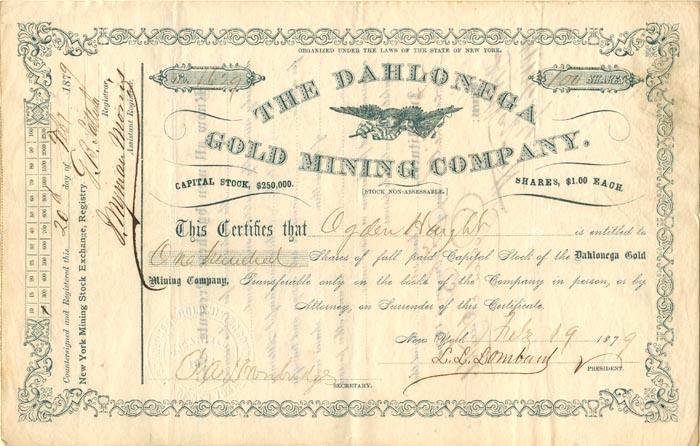 ORGANIZED UNDER THE LAWS OF THE STATE OF NEW YORK.
No.
100 SHARES
THE DAHLONEGA
GOLD MINING COMPANY.
CAPITAL STOCK, $250,000.
[STOCK NON-ASSESSABLE.]
SHARES, $1.00 EACH.
This Certifies that Ogden Haight is entitled to
One hundred Shares of full paid Capital Stock of the Dahlonega Gold
Mining Company, Transferable only on the books of the Company in person, or by
Attorney, on Surrender of this Certificate.
New York July 19 1879
L. L. Lombard
PRESIDENT.
SECRETARY.
Countersigned and Registered this 20th day of 1879
New York Mining Stock Exchange, Registry
Registrar,
Assistant Registrar.